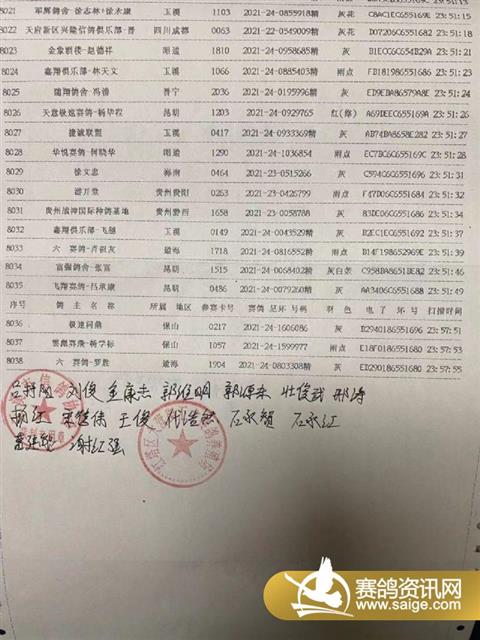 8021 军辉鸽舍-徐志林+徐永康 玉溪 1103 2021-24-0855918精 灰花 C8AC1EC655169E 23:51:15
8022 天府新区兴隆信鸽俱乐部-晋 四川成都 0063 2021-22-0549009精 灰花 D07206C6551682 23:51:18
8023 金象前楼-赵德祥 昭通 1810 2021-24-0958685精 灰 B1ECC6C654D29A 23:51:21
8024 鑫翔俱乐部-林天文 玉溪 1066 2021-24-0885403精 雨点 FD181986551686 23:51:23
8025 瑞翔鸽舍-冯谱 晋宁 2036 2021-24-0195996精 灰 ED9EBA86579A8E 23:51:24
8026 天意极速赛鸽-杨毕程 昆明 1203 2021-24-0929765 红(绛) A69DEEC655169A 23:51:26
8027 捷诚联盟 玉溪 0417 2021-24-0933369精 灰 AB74BA8658E282 23:51:27
8028 华悦赛鸽-何晓华 昭通 1290 2021-24-1036854 雨点 EC7BC6C655169C 23:51:28
8029 徐文忠 海南 0464 2021-23-0515266 灰 C594C6C6551696 23:51:31
8030 游开堂 贵州贵阳 0263 2021-23-0426799 雨点 F47D06C6551684 23:51:32
8031 贵州战神国际种鸽基地 贵州黔西 1658 2021-23-0058788 灰 83DE06C6551686 23:51:34
8032 鑫翔俱乐部-飞越 玉溪 0149 2021-24-0043529精 灰 D2EC1EC6551686 23:51:37
8033 六 赛鸽-卢祖友 通海 1718 2021-24-0816552精 雨点 B14F198652969E 23:51:39
8034 富强鸽舍-张富 昆明 1515 2021-24-0068402精 灰白条 C958BA8651BE82 23:51:46
8035 飞翔赛鸽-吕承康 昆明 0486 2021-24-0079260精 灰 AA3406C6551688 23:51:49
序号 鸽主名称 所属地区 参赛卡号 赛鸽足环号码 羽色 电子环号 扫描时间
8036 极速问鼎 保山 0217 2021-24-1606086 灰 D2940186551696 23:57:51
8037 云巅赛飞-杨学标 保山 1057 2021-24-1599977 雨点 E18F0186551680 23:57:53
8038 六 赛鸽-罗胜 通海 1904 2021-24-0803308精 灰 ED290186551680 23:57:55
刘俊 金康志 郭维明 郭源来 杜俊武 邢涛
宋俊伟 王俊 代浩然 石永智 石永江
谢江强
赛鸽资讯网
www.saige.com